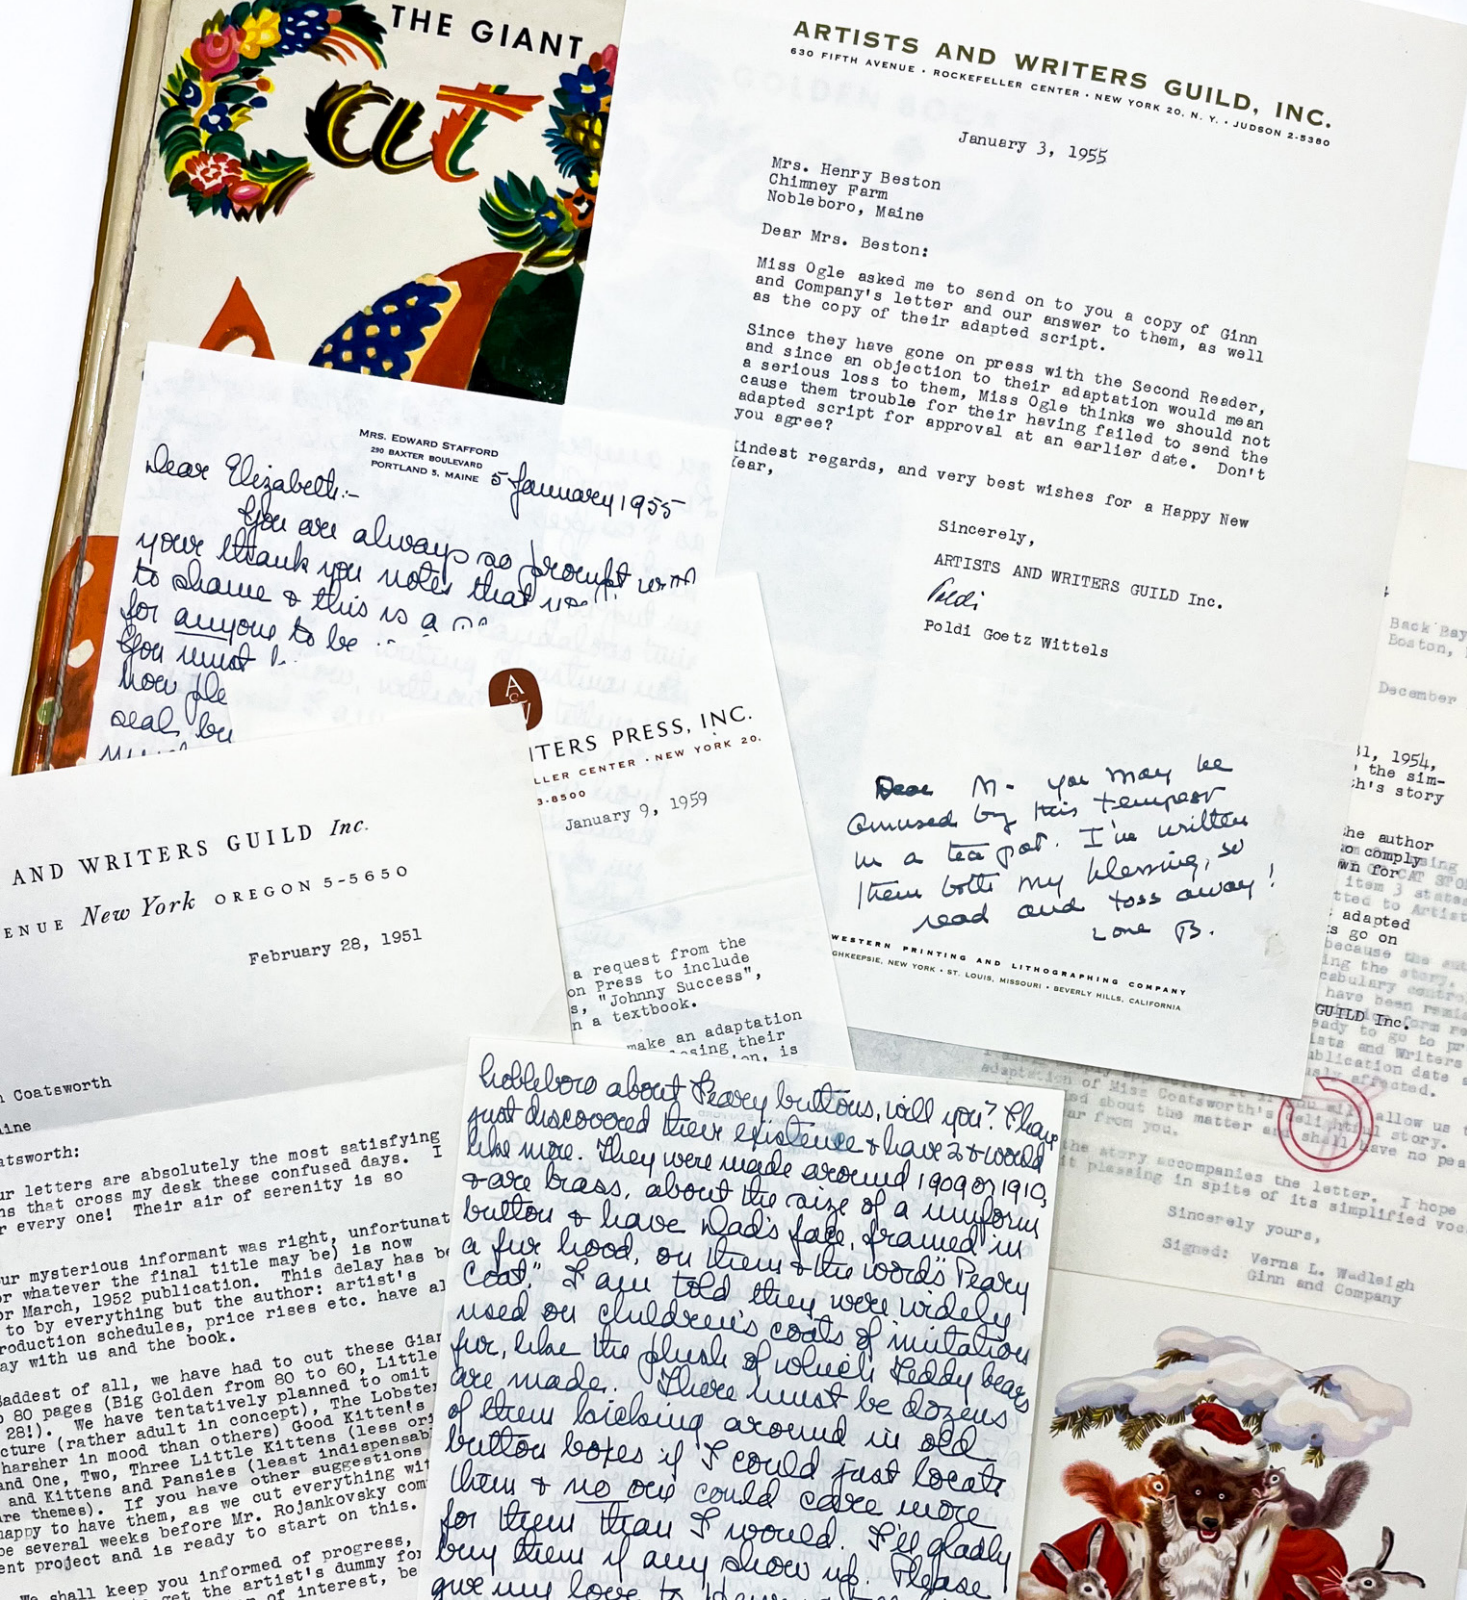 THE GIANT
Cat
ARTISTS AND WRITERS GUILD, INC.
630 FIFTH AVENUE • ROCKEFELLER CENTER • NEW YORK 20, N. Y. • JUDSON 2-5380
January 3, 1955
Mrs. Henry Beston
Chimney Farm
Nobleboro, Maine
Dear Mrs. Beston:
Miss Ogle asked me to send on to you a copy of Ginn
and Company's letter and our answer to them, as well
as the copy of their adapted script.
Since they have gone on press with the Second Reader,
and since an objection to their adaptation would mean
a serious loss to them, Miss Ogle thinks we should not
cause them trouble for their having failed to send the
adapted script for approval at an earlier date. Don't
you agree?
Kindest regards, and very best wishes for a Happy New
Year,
Sincerely,
ARTISTS AND WRITERS GUILD Inc.
Poldi
Poldi Goetz Wittels
Dear M- you may be
amused by this tempest
in a tea pot. I've written
them both my blessing, so
read and toss away!
Love B.
WESTERN PRINTING AND LITHOGRAPHING COMPANY
GHKEEPSIE, NEW YORK • ST. LOUIS, MISSOURI • BEVERLY HILLS, CALIFORNIA
MRS. EDWARD STAFFORD
290 BAXTER BOULEVARD
PORTLAND 5, MAINE
5 January 1955
Dear Elizabeth:-
You are always so prompt with
your thank you notes that
to shame & this is a
for anyone to be
You must
how ple
seal, bu
ITERS PRESS, INC.
LLER CENTER • NEW YORK 20,
3-8500
January 9, 1959
a request from the
on Press to include
s, "Johnny Success",
n a textbook.
make an adaptation
osing their
on, is
AND WRITERS GUILD Inc.
ENUE New York OREGON 5-5650
February 28, 1951
n Coatsworth
aine
atsworth:
ur letters are absolutely the most satisfying
ns that cross my desk these confused days. I
r every one! Their air of serenity is so
ur mysterious informant was right, unfortunat
or whatever the final title may be) is now
or March, 1952 publication. This delay has be
to by everything but the author: artist's
roduction schedules, price rises etc. have al
ay with us and the book.
Saddest of all, we have had to cut these Gian
o 80 pages (Big Golden from 80 to 60, Little
28!). We have tentatively planned to omit
cture (rather adult in concept), The Lobster
harsher in mood than others) Good Kitten's
and One, Two, Three Little Kittens (less ori
and Kittens and Pansies (least indispensab
re themes). If you have other suggestions
happy to have them, as we cut everything wit
be several weeks before Mr. Rojankovsky com
ent project and is ready to start on this.
We shall keep you informed of progress,
get the artist's dummy for
of interest, be
Nobleboro about Peary buttons, will you? I have
just discovered their existence & have 2 & would
like more. They were made around 1909 or 1910,
& are brass, about the size of a uniform
button & have Dad's face, framed in
a fur hood, on them & the words "Peary
Coat." I am told they were widely
used on children's coats of imitation
fur, like the plush of which Teddy bears
are made. There must be dozens
of them kicking around in old
button boxes if I could just locate
them & no one could care more
for them than I would. I'll gladly
buy them if any show up. Please
give my love to Henry
Back Bay
Boston,
December
31, 1954,
the sim-
th's story
he author
o comply
wn for
adapted
s go on
GUILD Inc.
item 3 states
tted to Artist
because the aut
ing the story.
cabulary control
have been remis
eady to go to pr
ists and Writers
ublication date s
usly affected.
you will allow us t
adaptation of Miss Coatsworth's delightful story.
ed about the matter and shall have no pea
ar from you.
the story accompanies the letter. I hope
it pleasing in spite of its simplified voc
Sincerely yours,
Signed: Verna L. Wadleigh
Ginn and Company